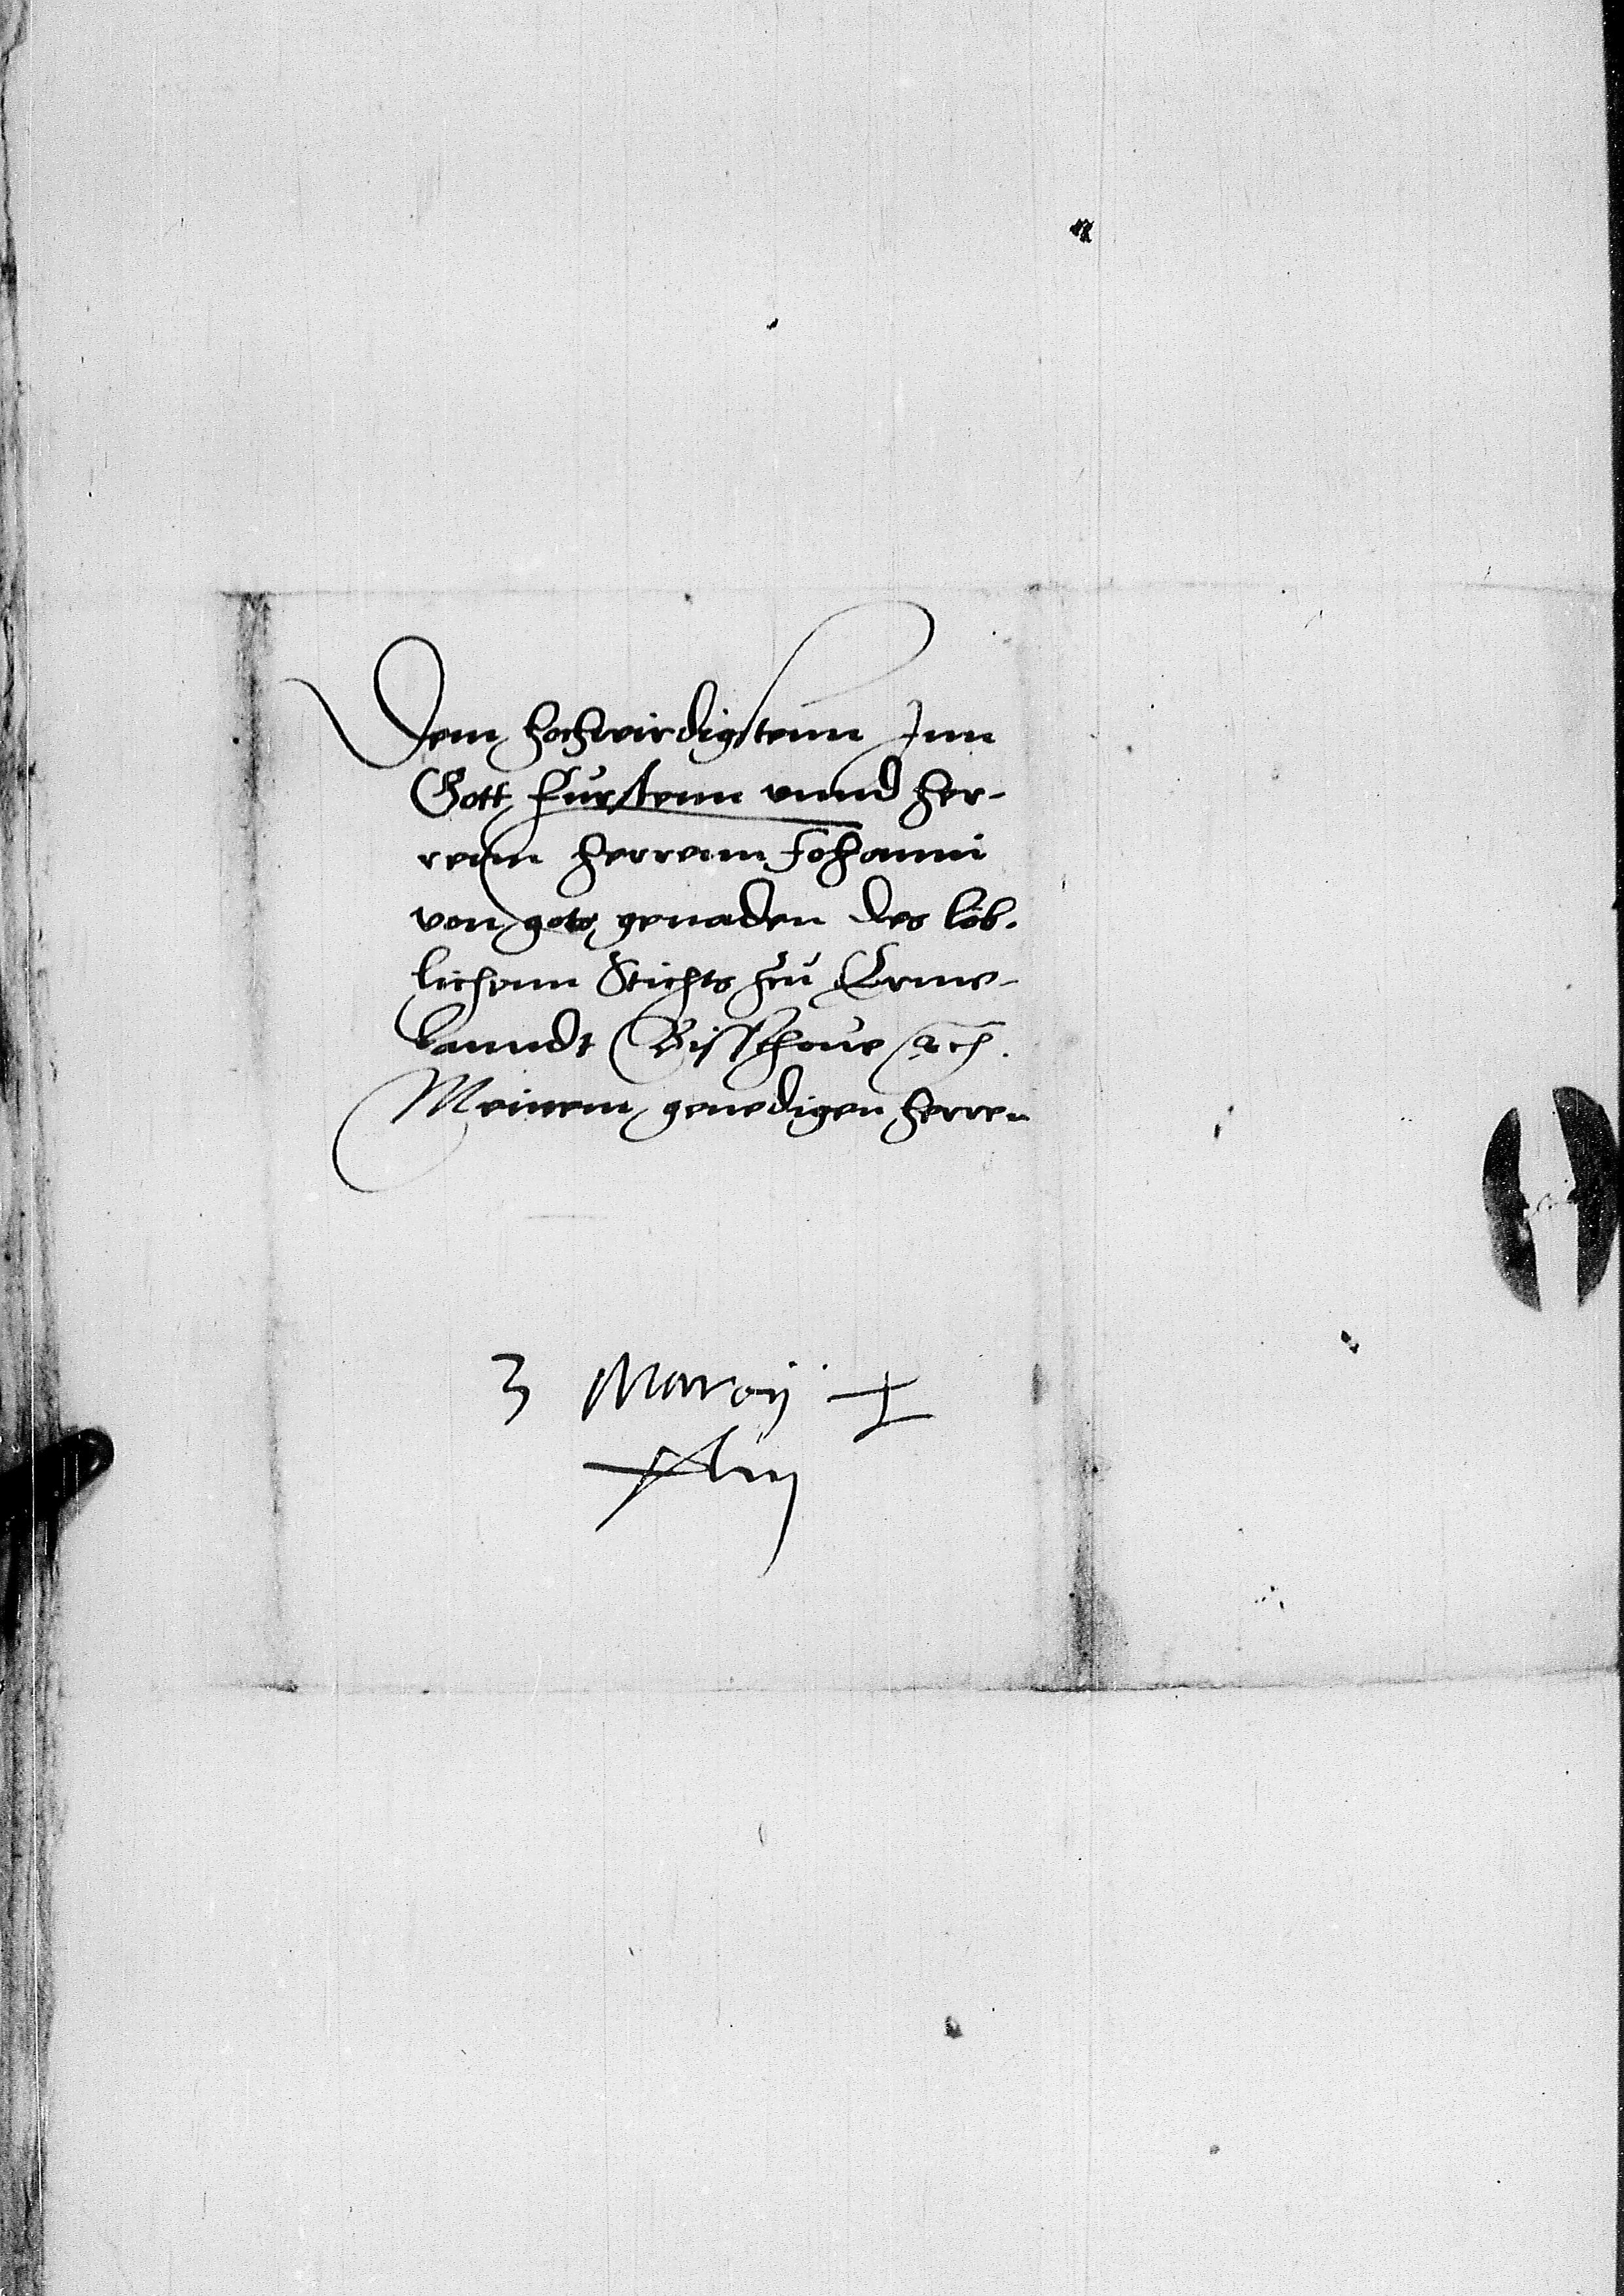 Dem hochwirdigstenn Inn
Gott Furstenn vnnd her-
renn herrenn Johanni
von gots genaden des lob-
lichenn Stichts zu Erme-
landt Bisschoue etc.
Meinem genedigen herren
3 Marcij